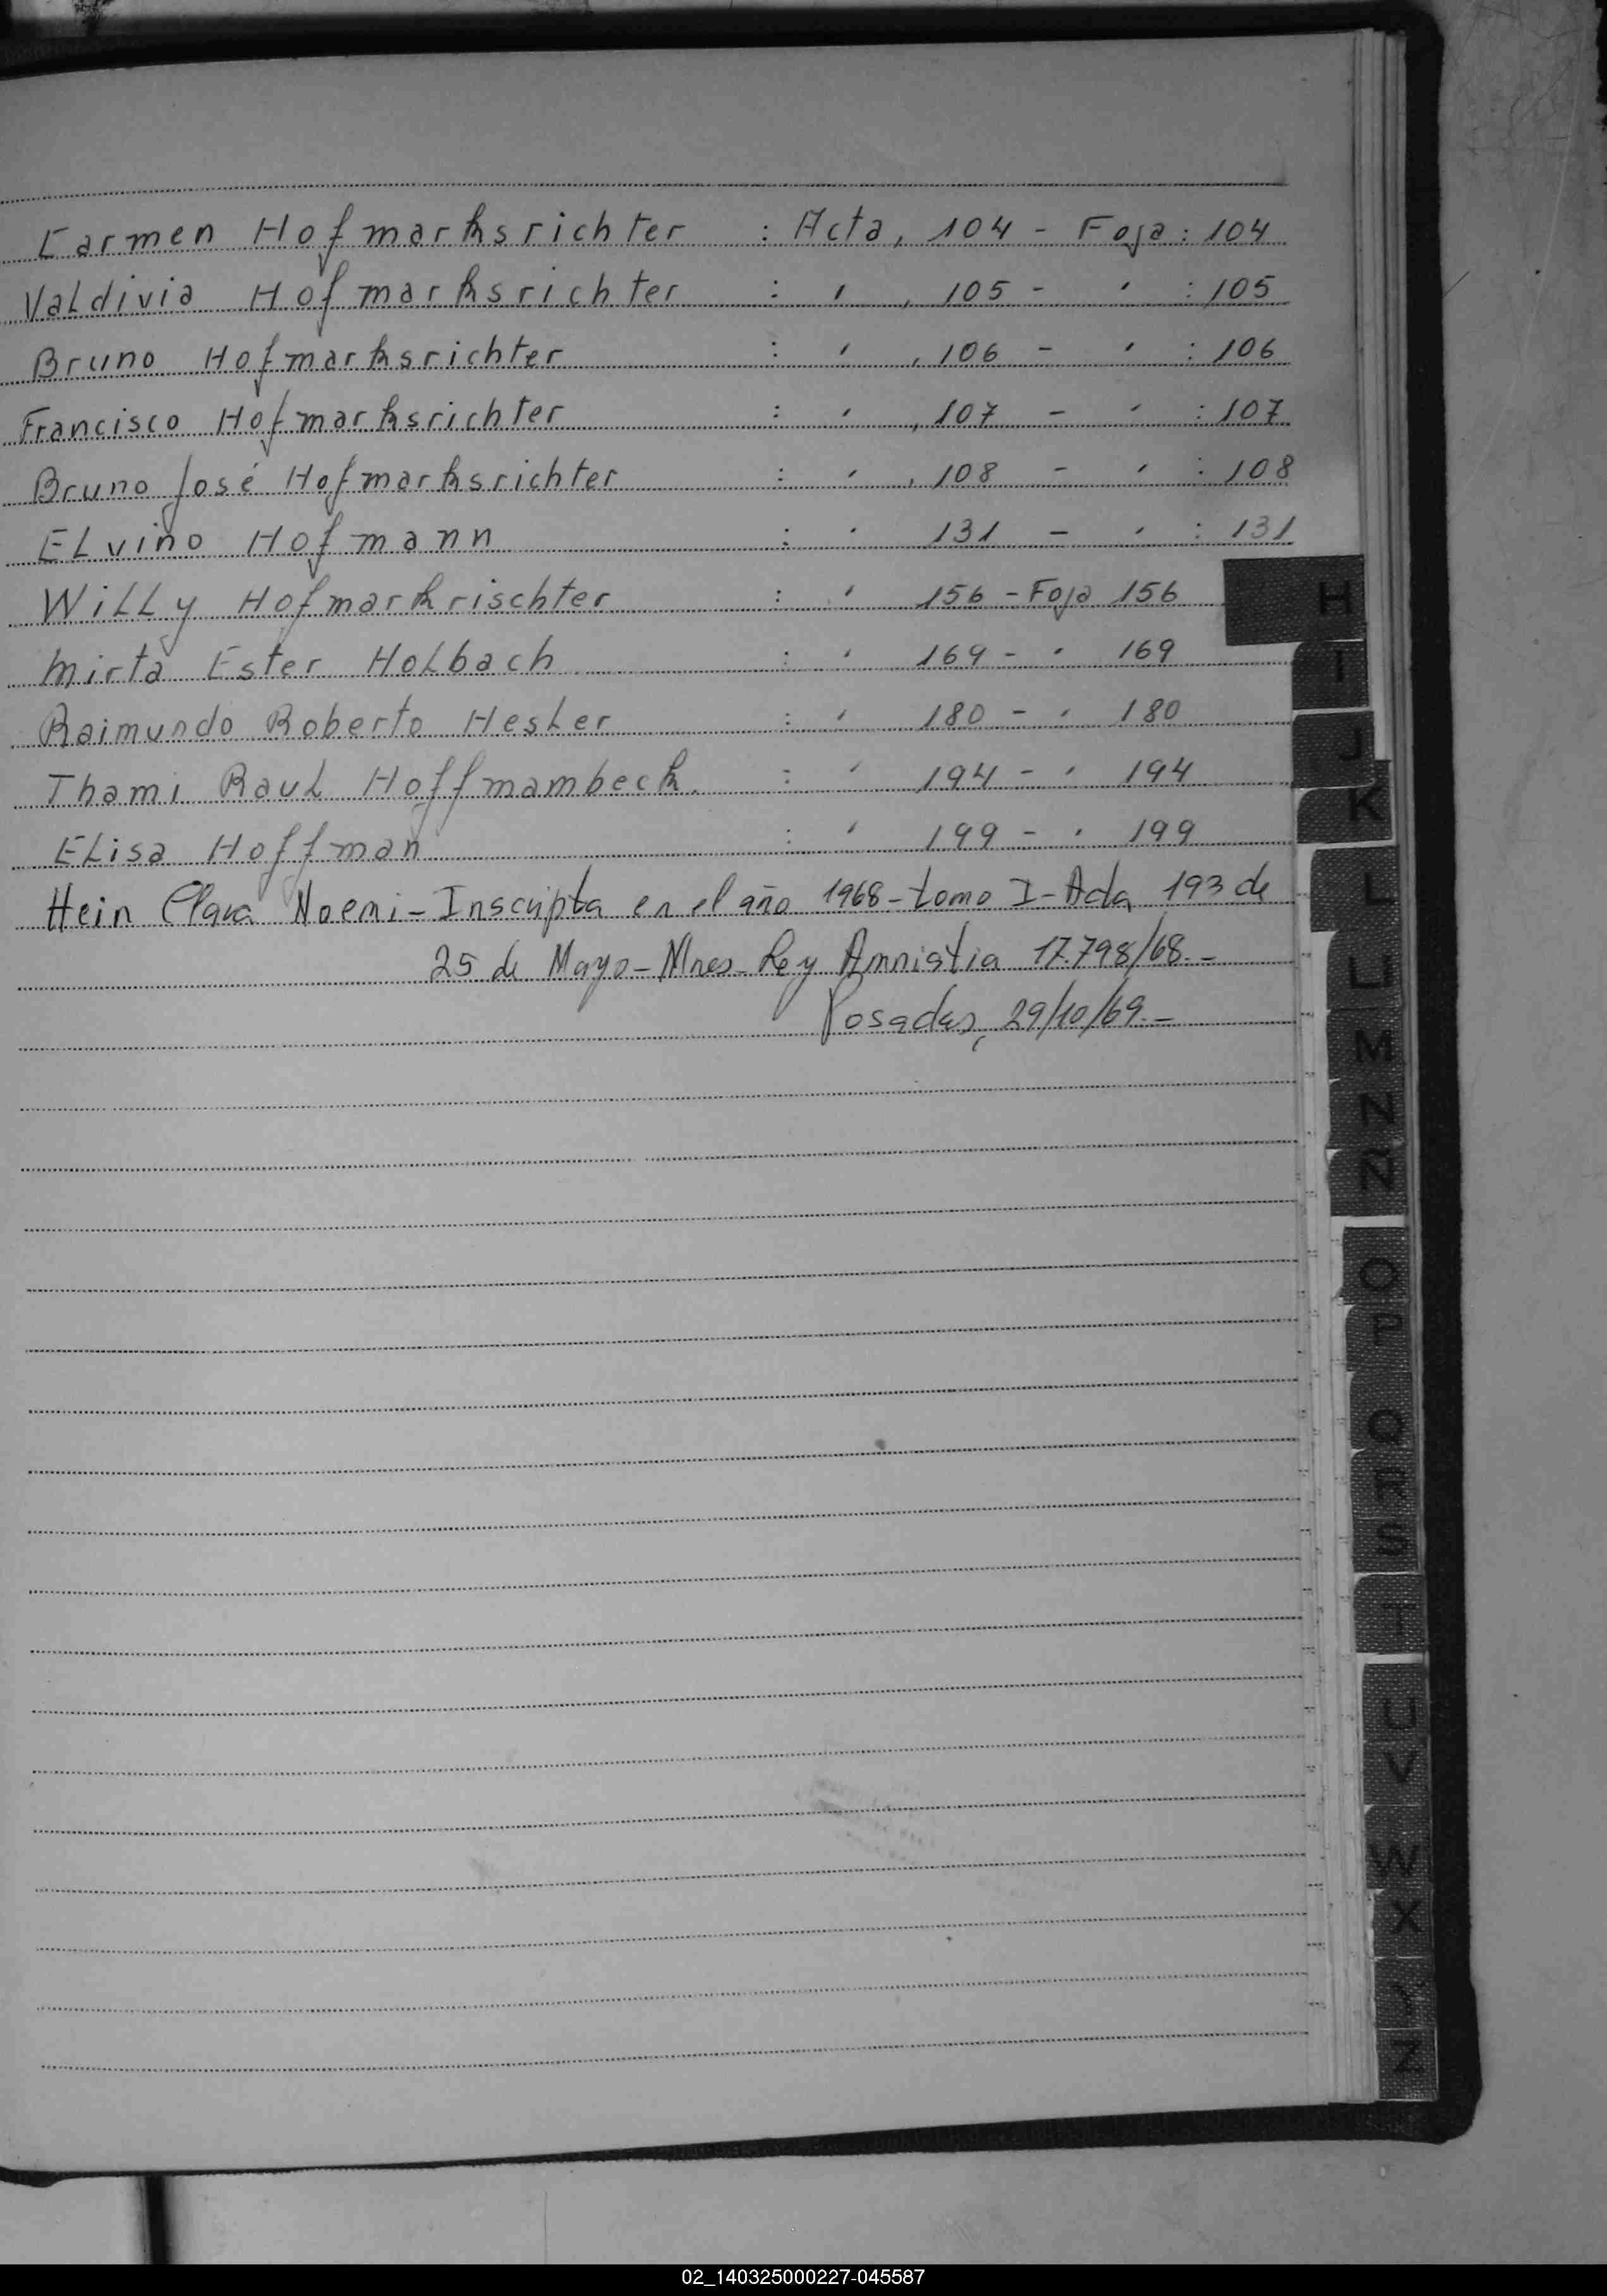 Carmen Hofmarksrichter : Acta, 104 - Foja : 104
Valdivia Hofmarksrichter : " , 105 - " : 105
Bruno Hofmarksrichter : " , 106 - " : 106
Francisco Hofmarksrichter : " , 107 - " : 107
Bruno José Hofmarksrichter : " , 108 - " : 108
Elvino Hofmann : " 131 - " : 131
Willy Hofmarkrischter : " 156 - Foja 156
Mirta Ester Holbach : " 169 - " 169
Raimundo Roberto Hesler : " 180 - " 180
Thami Raul Hoffmambeck. : " 194 - " 194
Elisa Hoffman : " 199 - " 199
Hein Clara Noemi - Inscripta en el año 1968 - tomo I - Acta 193 de
25 de Mayo - Mnes - Ley Amnistia 17.798/68. -
Posadas, 29/10/69. -
H
I
J
K
L
LL
M
N
Ñ
O
P
Q
R
S
T
U
V
W
X
Y
Z
02_140325000227-045587